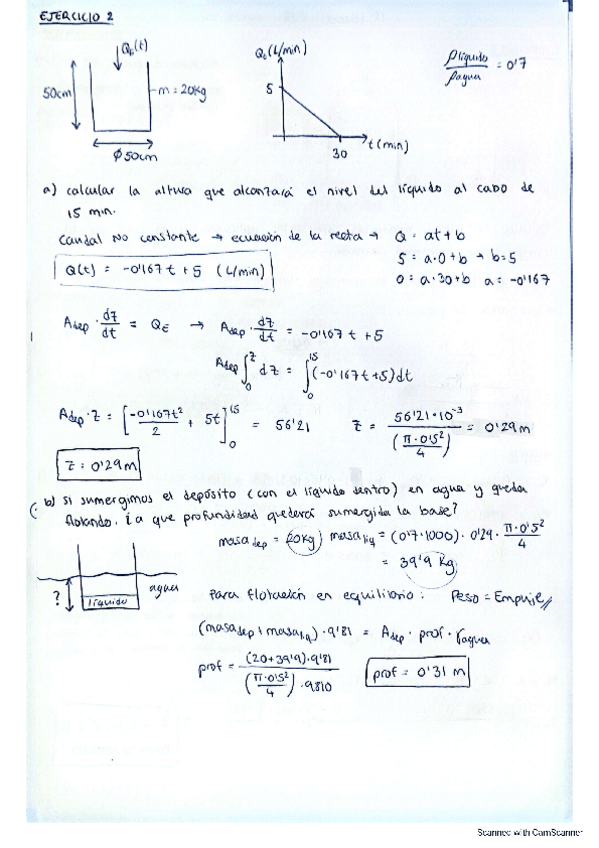 EJERCICIO 2
QE(t)
50cm
m = 20kg
Ø 50cm
QE (L/min)
5
30
t (min)
ρlíquido / ρagua = 0'7
a) calcular la altura que alcanzará el nivel del líquido al cabo de
15 min.
Caudal NO constante → ecuación de la recta → Q = at + b
5 = a·0 + b → b = 5
Q(t) = -0'167 t + 5 (L/min)
0 = a·30 + b a = -0'167
Adep · dz/dt = QE → Adep · dz/dt = -0'167 t + 5
Adep ∫₀^z dz = ∫₀^15 (-0'167 t + 5) dt
Adep · z = [-0'167t²/2 + 5t]₀^15 = 56'21 z = 56'21·10⁻³ / (π·0'5²/4) = 0'29 m
z = 0'29 m
b) Si sumergimos el depósito (con el líquido dentro) en agua y queda
flotando. ¿a que profundidad quedará sumergida la base?
masa dep = 20kg masa líq = (0'7·1000) · 0'29 · π·0'5²/4
= 39'9 kg
?
líquido
agua
Para flotación en equilibrio: Peso = Empuje
(masadep + masalíq) · 9'81 = Adep · prof · γagua
prof = (20+39'9)·9'81 / (π·0'5²/4)·9810
prof = 0'31 m
Scanned with CamScanner